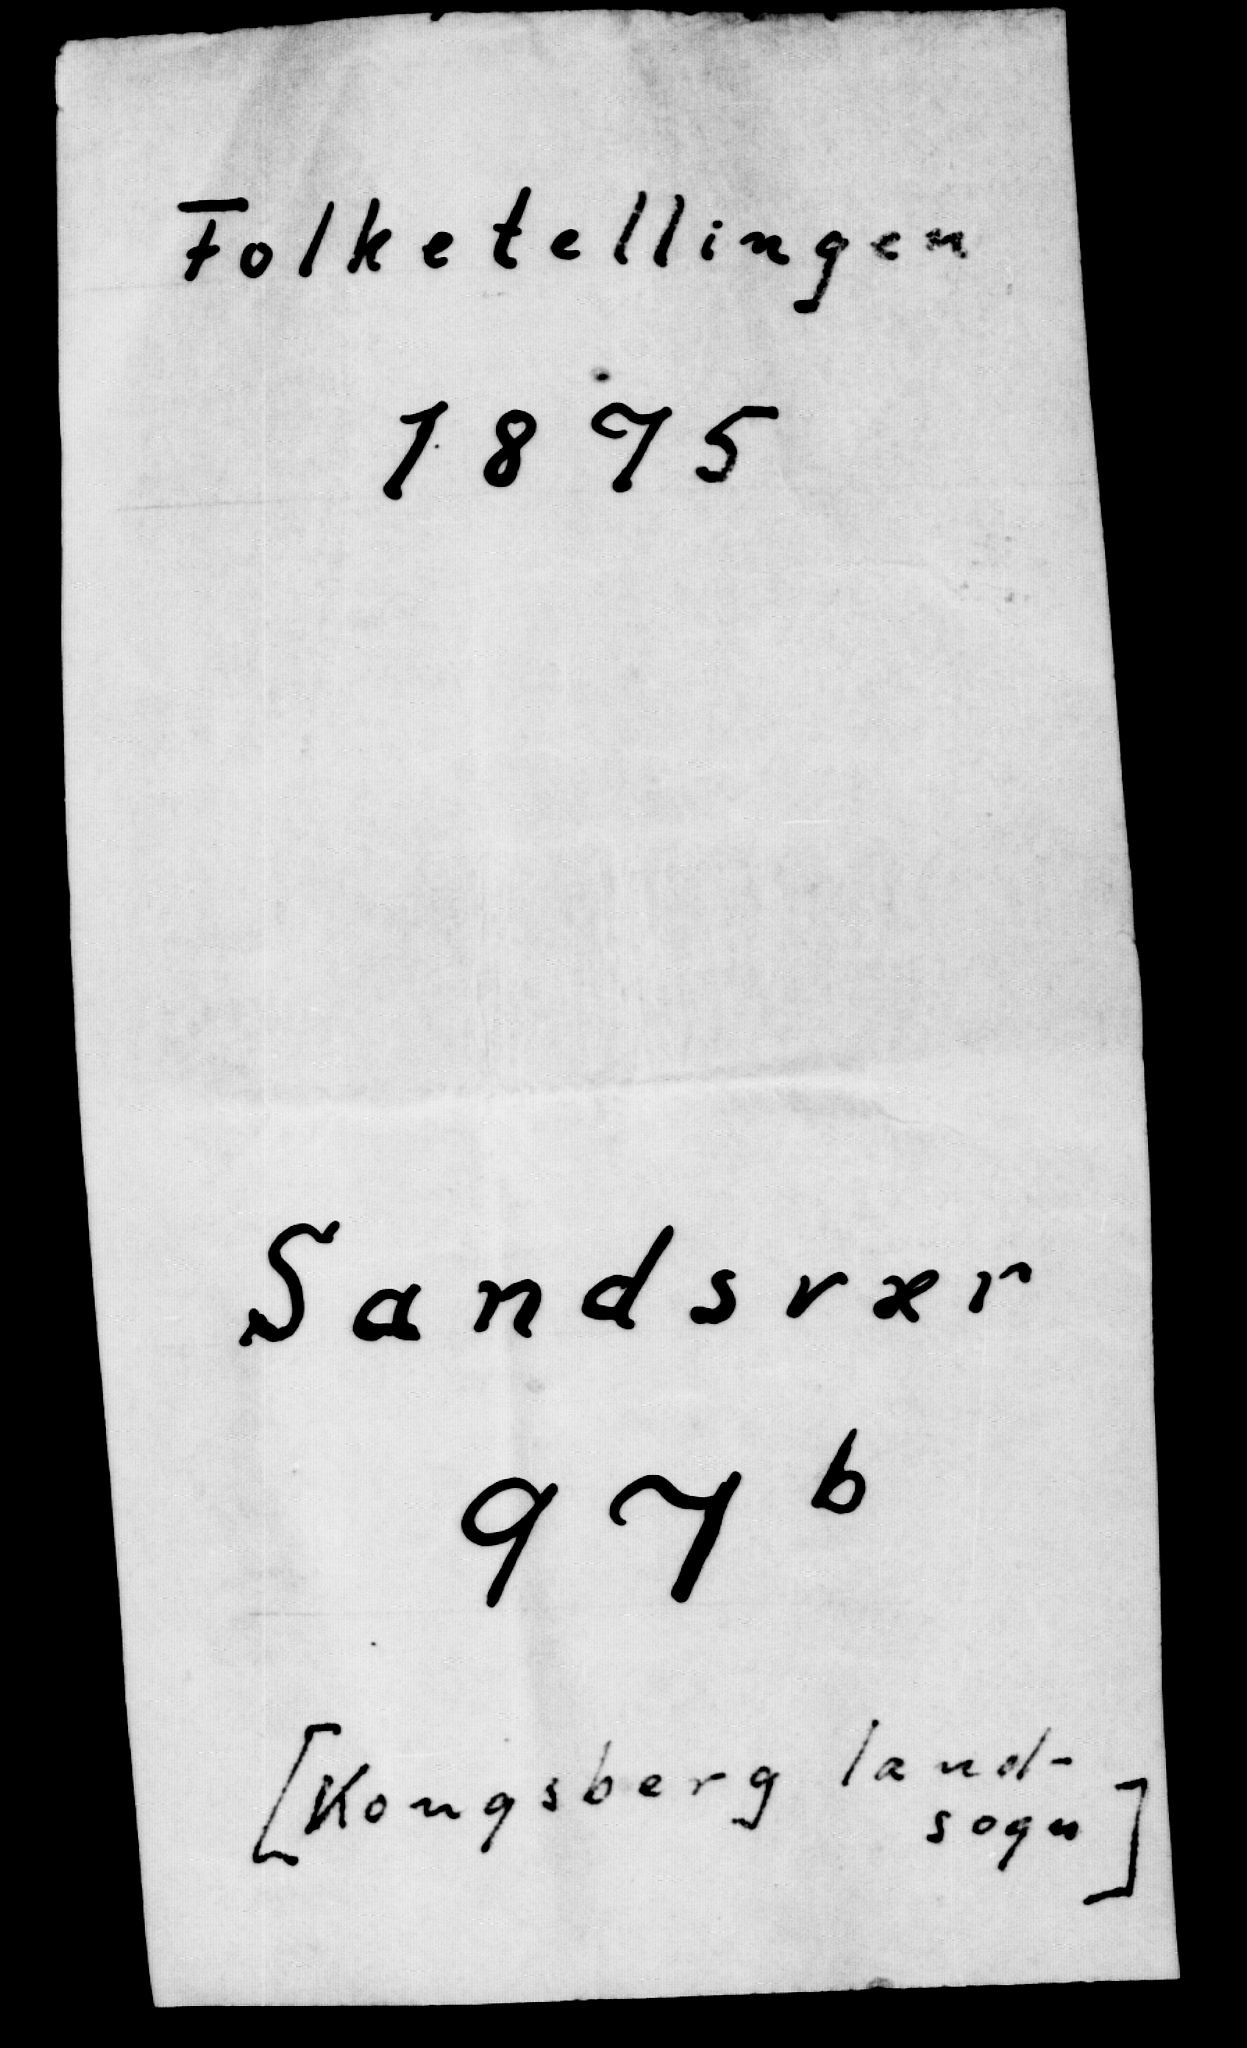 Folketellingen
1875
Sandsvær
97 b
[Kongsberg land-
sogn]